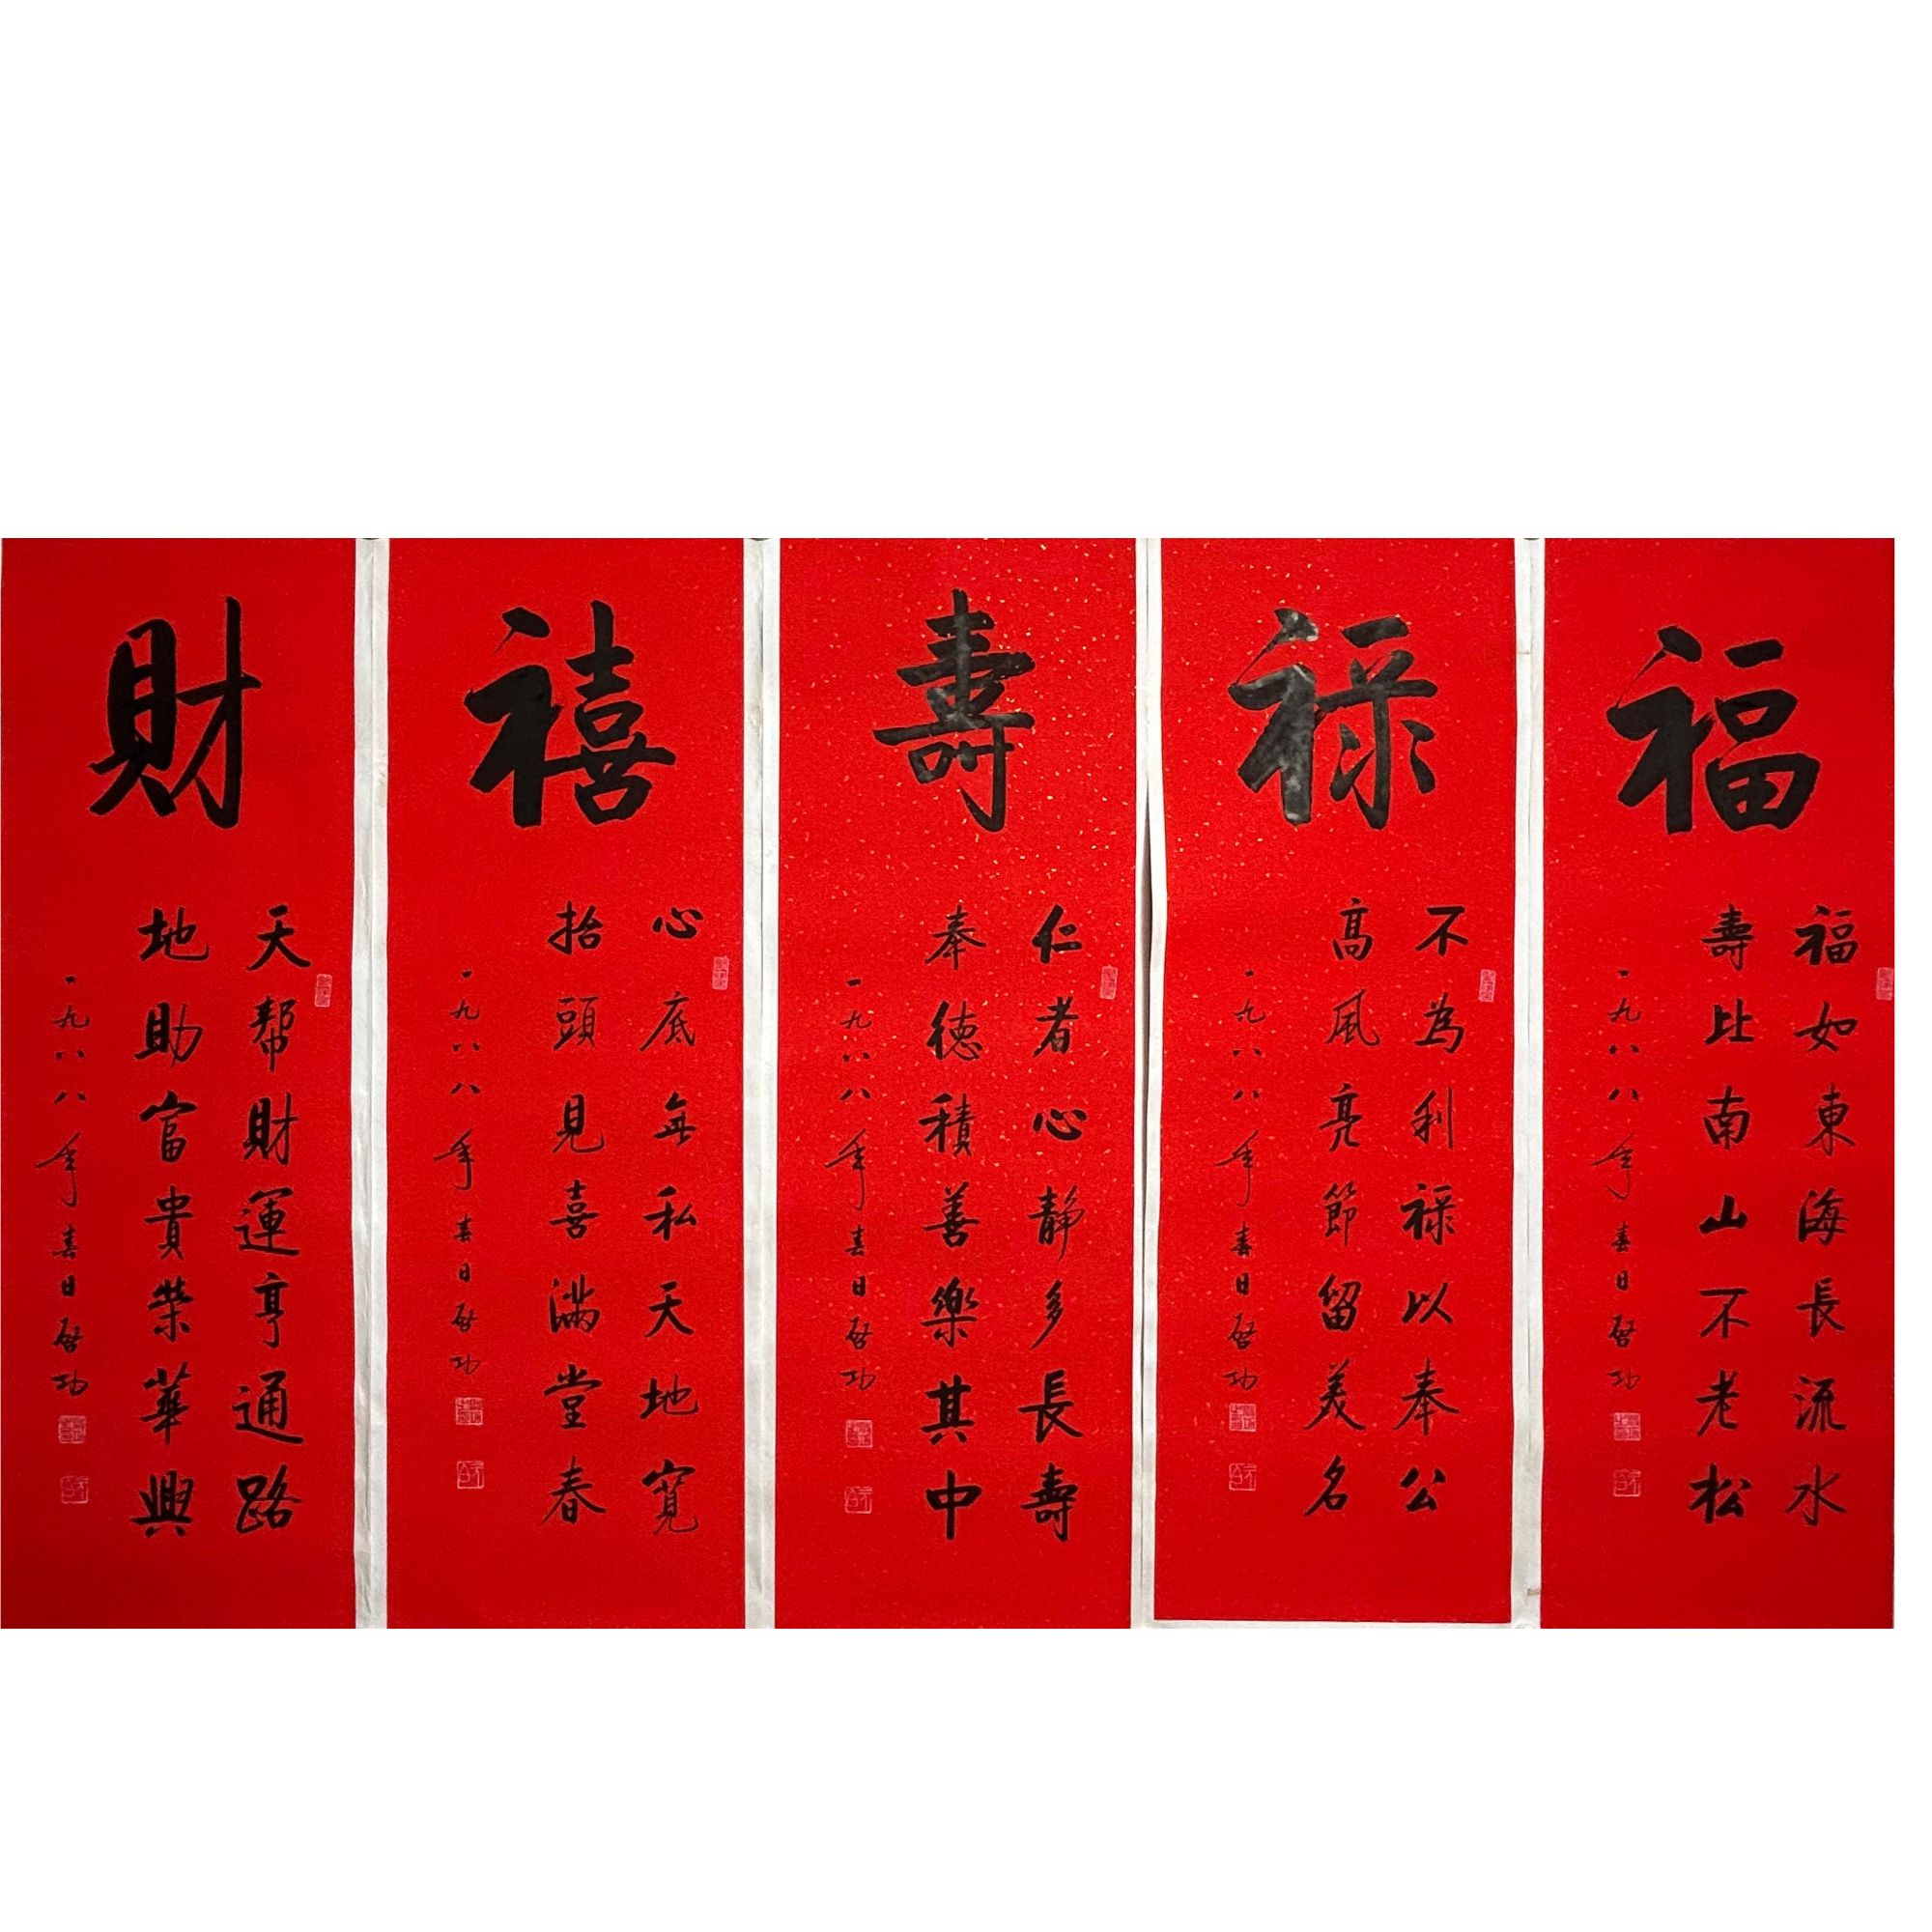 福
福如東海長流水
壽比南山不老松
一九八八年春日啓功
禄
不為利禄以奉公
高風亮節留美名
一九八八年春日啓功
壽
仁者心静多長壽
奉德積善樂其中
一九八八年春日啓功
禧
心底无私天地寬
抬頭見喜满堂春
一九八八年春日啓功
財
天帮財運亨通路
地助富貴荣華興
一九八八年春日啓功